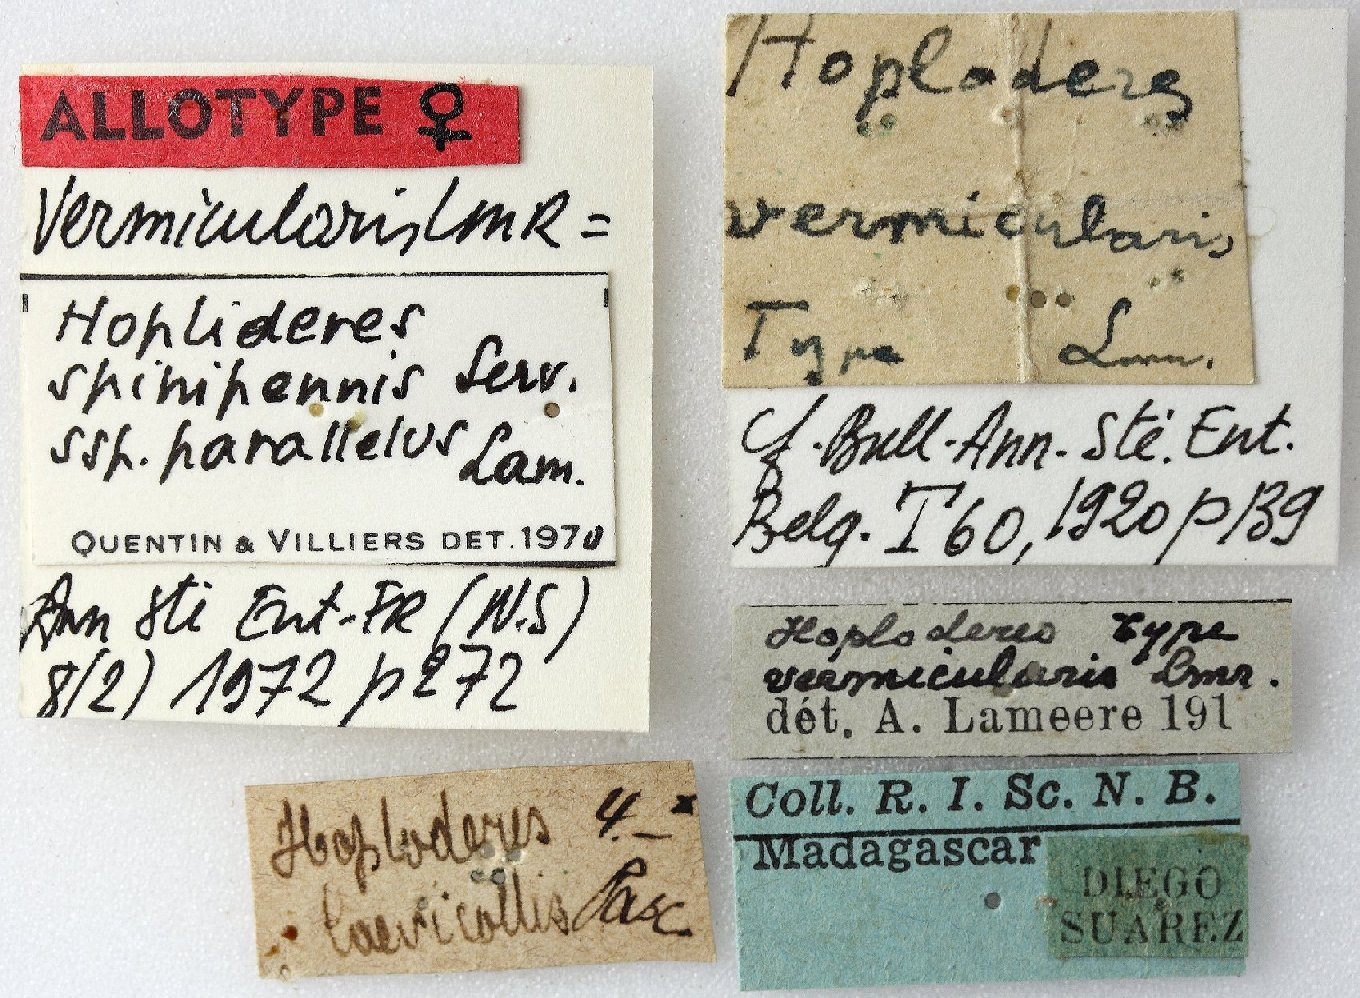 ALLOTYPE ♀
Vermicularis LMR =
Hoplideres
spinipennis Serv.
ssp. parallelus Lam.
QUENTIN & VILLIERS DET. 1970
Ann Sté Ent-FR (N.S)
8(2) 1972 p 272
Hoploderes
vermicularis
Type Lmr.
cf. Bull-Ann. Sté. Ent.
Belg. T 60, 1920 p 139
Hoploderes Type
vermicularis Lmr.
dét. A. Lameere 191
Hoploderes 4.–
laevicollis Pasc
Coll. R. I. Sc. N. B.
Madagascar
DIEGO
SUAREZ